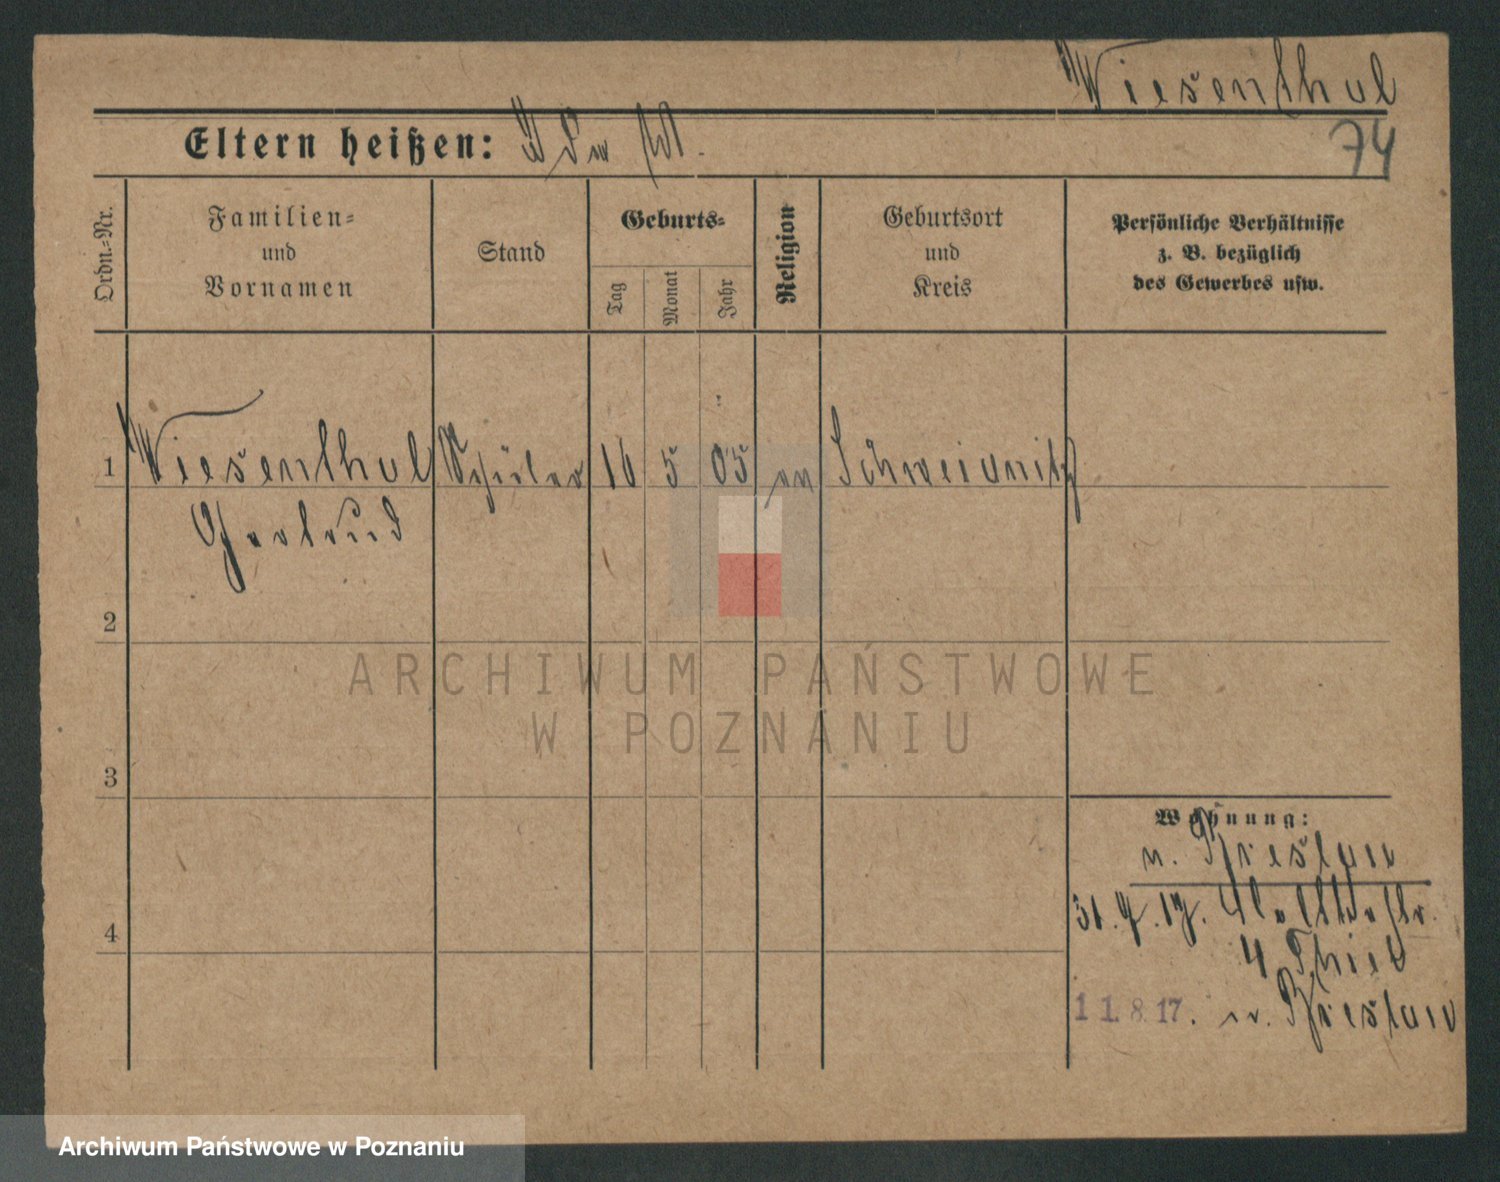 Wiesenthal
Eltern heißen:
74
Ordn.-Nr.
Familien-
und
Vornamen
Stand
Geburts-
Tag
Monat
Jahr
Religion
Geburtsort
und
Kreis
Persönliche Verhältnisse
z. B. bezüglich
des Gewerbes usw.
1 Wiesenthal Schüler 10 5 05 Schweidnitz
Gertrud
2
3
4
Wohnung:
n. Breslau
31. 7. 17.
4 Thiel
11.8.17. n. Breslau
ARCHIWUM PAŃSTWOWE
W POZNANIU
Archiwum Państwowe w Poznaniu